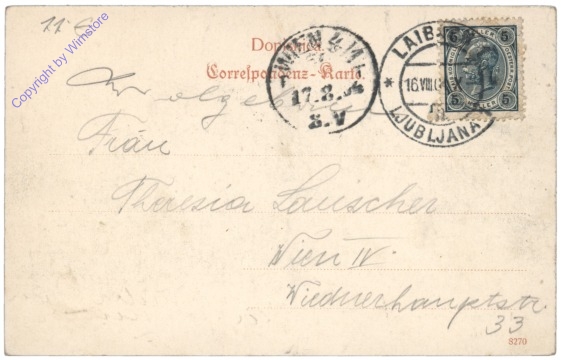 11 €
Copyright by Wimstore
Dopisnica.
Correspondenz-Karte
WIEN 4/1
17.8.04
8.V
LAIBACH
16.VIII
LJUBLJANA
5 5
5 5
Wohlgeboren
Frau
Theresia Lauscher
Wien IV.
Wiednerhauptstr.
33
8270